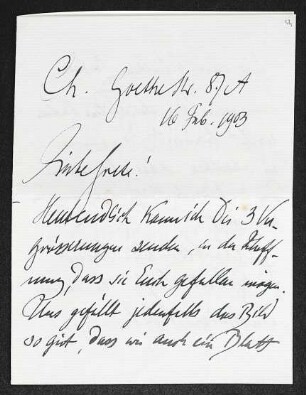 Ch. Goethestr. 87 A
16 Feb. 1903
Liebe Grete!
Heute endlich kann ich Dir 3 Ver-
grösserungen senden, in der Hoff-
nung, dass sie Euch gefallen mögen.
Uns gefällt jedenfalls das Bild
so gut, dass wir auch ein Blatt